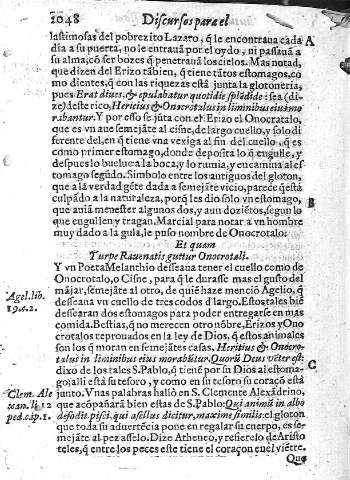 1048 Discursos para el
lastimosas del pobrezito Lazaro, q̃ le encontraua cada
dia a su puerta, no le entraua por el oydo, ni passauã a
su alma, cõ ser bozes q̃ penetrauã los cielos. Mas notad,
que dizen del Erizo tãbien, q̃ tiene tãtos estomagos, co
mo dientes, q̃ con las riquezas està junta la glotoneria,
pues Erat diues, & epulabatur quotidie splẽdide: sea (di-
ze) deste rico, Hericius & Onocrotalus in liminibus eius mo
rabantur. Y por esso se júta con el Erizo el Onocratalo,
que es vn aue semejãte al cisne, de largo cuello, y solo di
ferente del, en q̃ tiene vna vexiga al fin del cuello, q̃ es
como primer estomago, donde deposita lo q̃ engulle, y
despues lo buelue a la boca, y lo rumia, y encamina al es-
tomago segũdo. Simbolo entre los antiguos del gloton,
que a là verdad gẽte dada a semejãte vicio, parece q̃ està
culpãdo a la naturaleza, porq̃ les dio solo vn estomago,
que auiã menester algunos dos, y aun dozietos, segun lo
que engullen y tragan. Marcial para notar a vn hombre
muy dado a la gula, le puso nombre de Onocrotalo:
Et quam
Turpe Rauenatis guttur Onocrotali.
Y vn Poeta Melanchio desseaua tener el cuello como de
Onocrotalo, o Cisne, para q̃ le durasse mas el gusto del
mãjar, semejãte al otro, de quiẽ haze menciõ Agelio, q̃
desseaua vn cuello de tres codos d'largo. Estos tales biẽ
dessearan dos estomagos para poder entregarse en mas
comida. Bestias, q̃ no merecen otro nõbre, Erizos y Ono
crotalos reprouados en la ley de Dios, q̃ estos animales
son los q̃ moran en semejãtes casas, Heritius & Onocro-
talus in liminibus eius morabũtur. Quorũ Deus vẽter est:
dixo de los tales S. Pablo, q̃ tienẽ por su Dios al estoma-
go; alli està su tesoro, y como en su tesoro su coraçõ està
junto. Vnas palabras hallò en S. Clemente Alexãdrino,
que acõpañarà bien estas de S. Pablo: Qui animũ in aluo
defodit pisci, qui asellus dicitur, maxime similis: el gloton
que toda su aduertẽcia pone en regalar su cuerpo, es se-
mejãte al pez asselo. Dize Atheneo, y refierelo de Aristo
teles, q̃ entre los peces este tiene el coraçon en el viẽtre.
Que
A
B
C
Agel. lib.
19. c. 2.
Clem. Ale
xan. li. 2
ped. cap. 1.